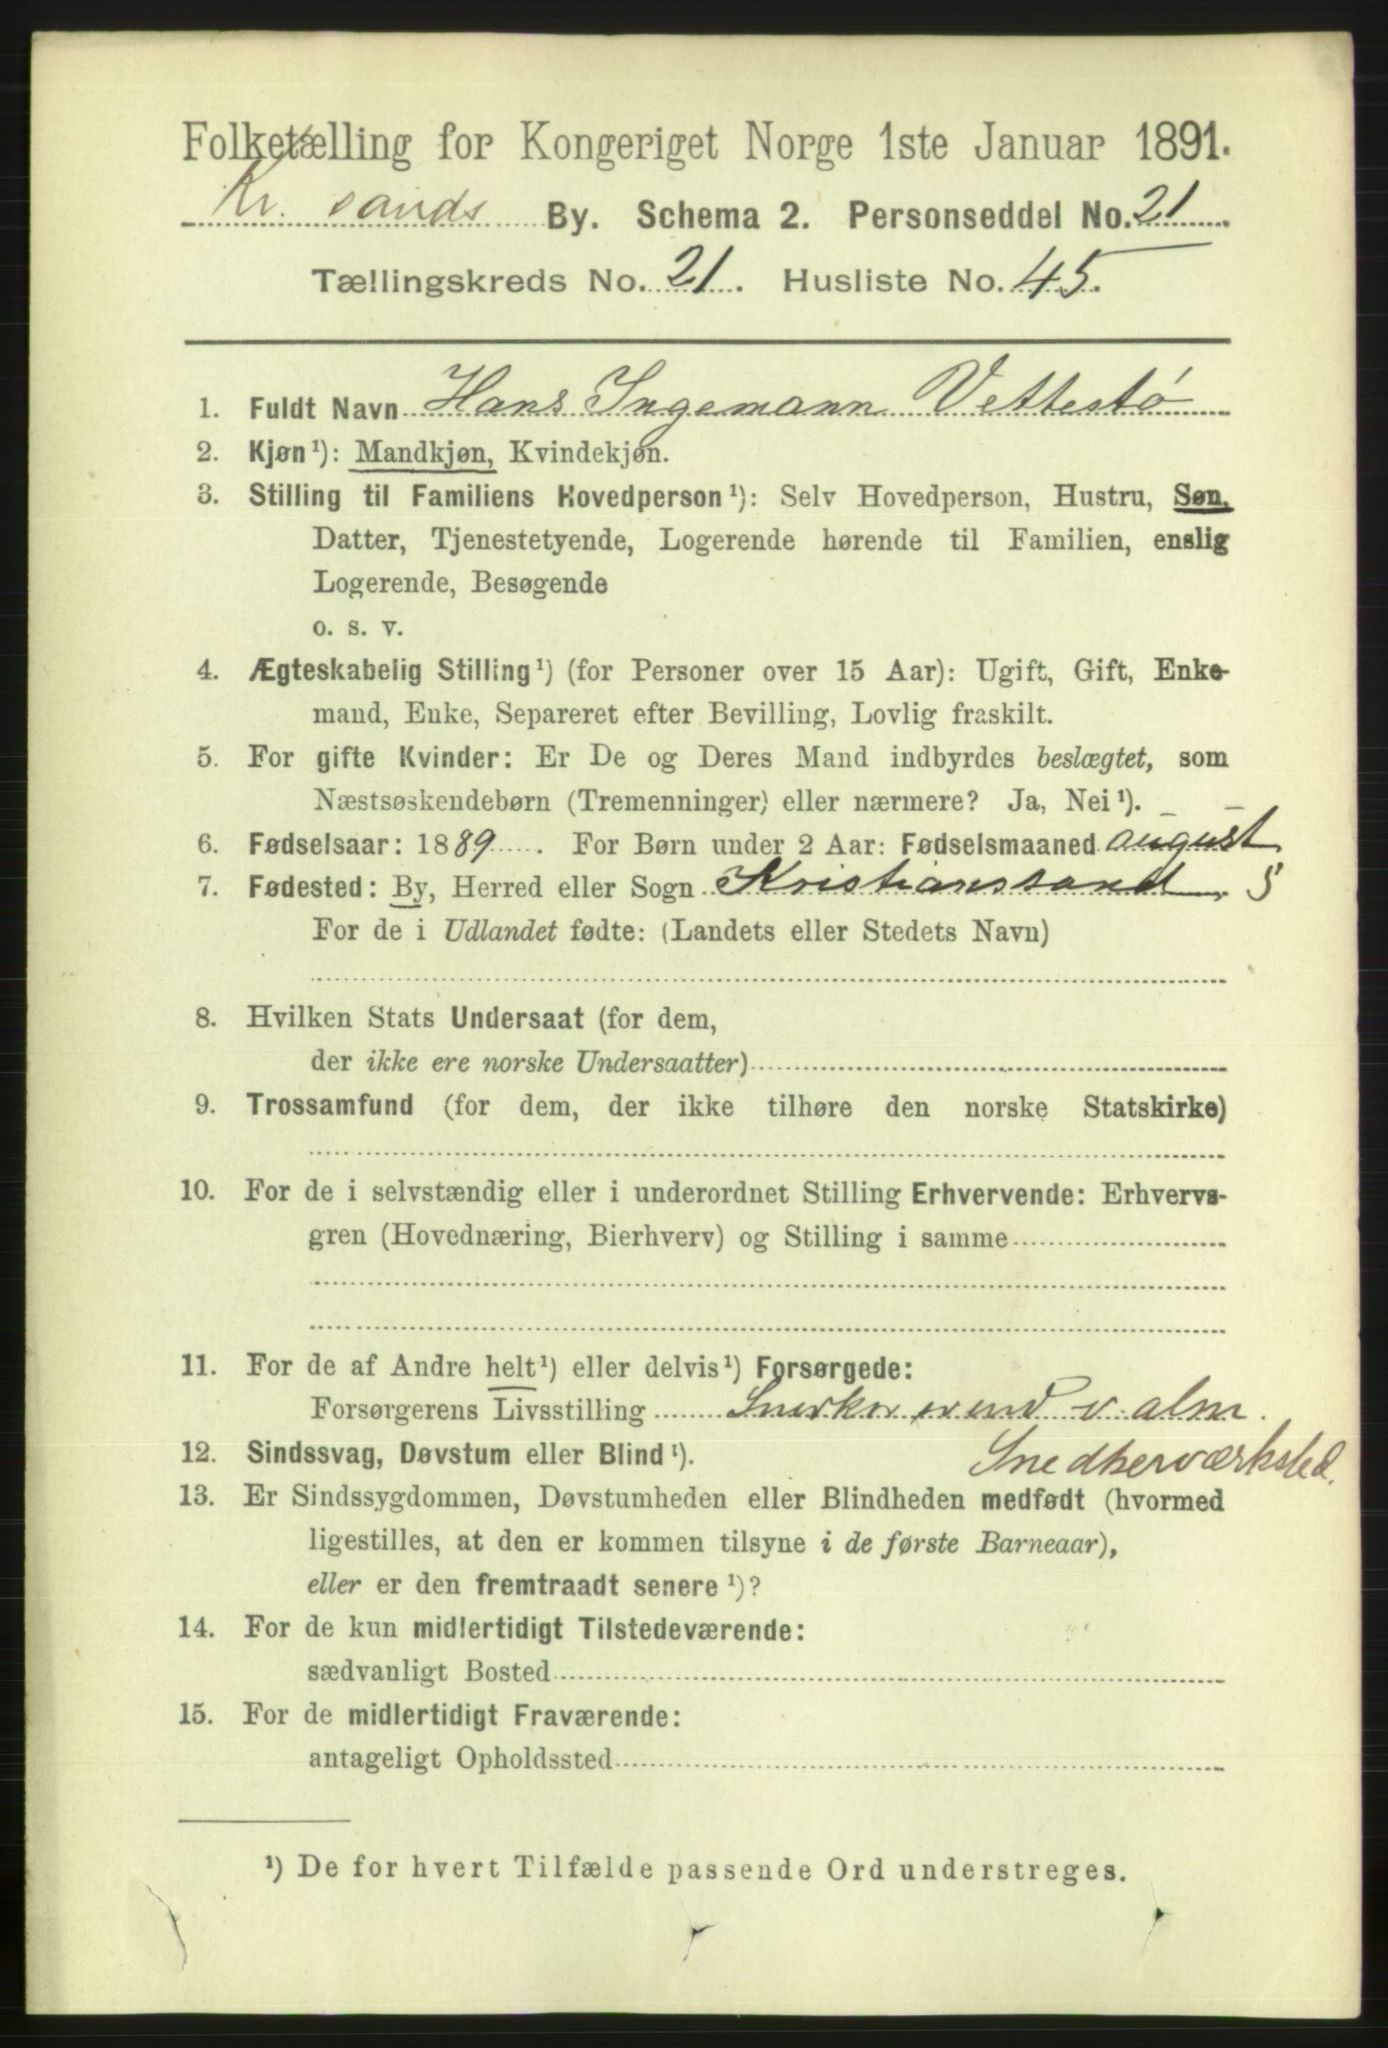 Folketælling for Kongeriget Norge 1ste Januar 1891.
Kr. sands By. Schema 2. Personseddel No. 21.
Tællingskreds No. 21. Husliste No. 45.
1. Fuldt Navn Hans Ingemann Vettestö
2. Kjøn¹): Mandkjøn, Kvindekjøn.
3. Stilling til Familiens Hovedperson¹): Selv Hovedperson, Hustru, Søn,
Datter, Tjenestetyende, Logerende hørende til Familien, enslig
Logerende, Besøgende
o. s. v.
4. Ægteskabelig Stilling¹) (for Personer over 15 Aar): Ugift, Gift, Enke-
mand, Enke, Separeret efter Bevilling, Lovlig fraskilt.
5. For gifte Kvinder: Er De og Deres Mand indbyrdes beslægtet, som
Næstsøskendebørn (Tremenninger) eller nærmere? Ja, Nei¹).
6. Fødselsaar: 1889. For Børn under 2 Aar: Fødselsmaaned august
7. Fødested: By, Herred eller Sogn Kristianssand. S
For de i Udlandet fødte: (Landets eller Stedets Navn)
8. Hvilken Stats Undersaat (for dem,
der ikke ere norske Undersaatter)
9. Trossamfund (for dem, der ikke tilhøre den norske Statskirke)
10. For de i selvstændig eller i underordnet Stilling Erhvervende: Erhvervs-
gren (Hovednæring, Bierhverv) og Stilling i samme
11. For de af Andre helt¹) eller delvis¹) Forsørgede:
Forsørgerens Livsstilling v alm.
12. Sindssvag, Døvstum eller Blind¹). Snedkerværksted.
13. Er Sindssygdommen, Døvstumheden eller Blindheden medfødt (hvormed
ligestilles, at den er kommen tilsyne i de første Barneaar),
eller er den fremtraadt senere¹)?
14. For de kun midlertidigt Tilstedeværende:
sædvanligt Bosted
15. For de midlertidigt Fraværende:
antageligt Opholdssted
¹) De for hvert Tilfælde passende Ord understreges.